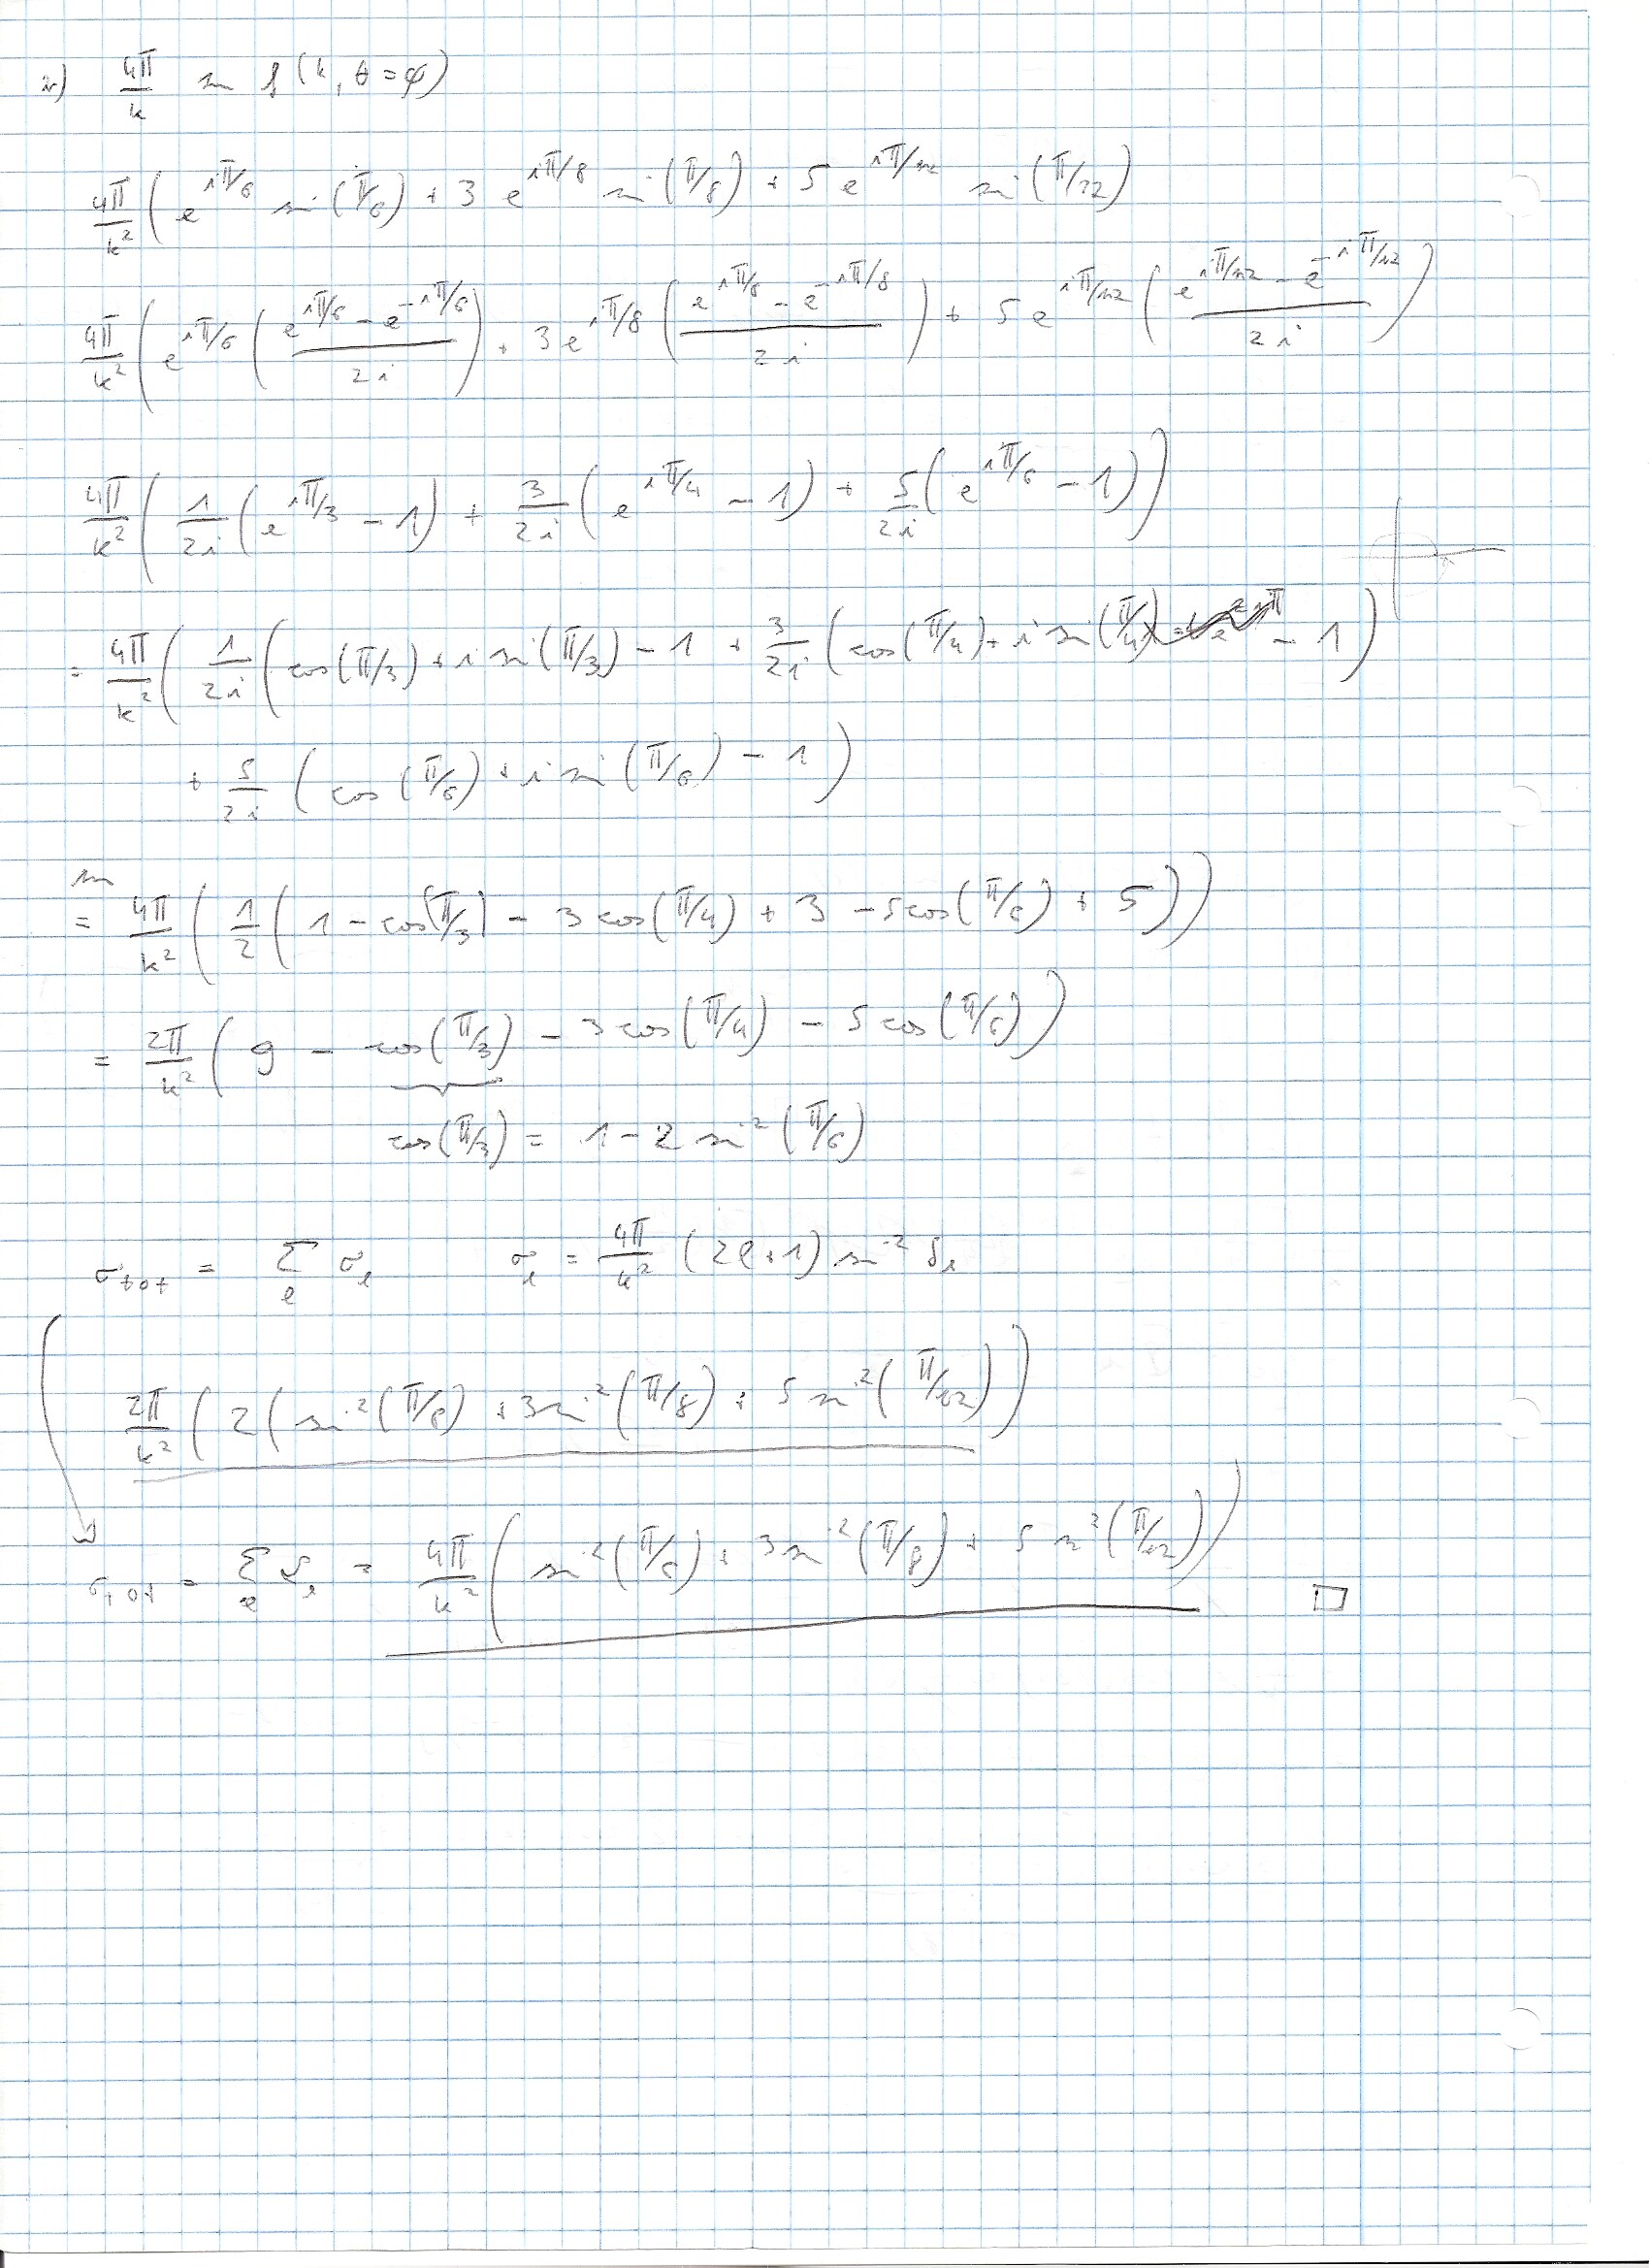 iv) 4π/k Im f(k, θ=φ)
4π/k² ( e^{iπ/6} sin(π/6) + 3 e^{iπ/8} sin(π/8) + 5 e^{iπ/12} sin(π/12)
4π/k² ( e^{iπ/6} ( (e^{iπ/6} - e^{-iπ/6})/2i ) + 3 e^{iπ/8} ( (e^{iπ/8} - e^{-iπ/8})/2i ) + 5 e^{iπ/12} ( (e^{iπ/12} - e^{-iπ/12})/2i )
4π/k² ( 1/2i ( e^{iπ/3} - 1) + 3/2i ( e^{iπ/4} - 1) + 5/2i ( e^{iπ/6} - 1))
= 4π/k² ( 1/2i ( cos(π/3) + i sin(π/3) - 1 + 3/2i ( cos(π/4) + i sin(π/4) - 1)
+ 5/2i ( cos(π/6) + i sin(π/6) - 1 )
Im
= 4π/k² ( 1/2 ( 1 - cos(π/3) - 3 cos(π/4) + 3 - 5 cos(π/6) + 5 ))
= 2π/k² ( 9 - cos(π/3) - 3 cos(π/4) - 5 cos(π/6) )
cos(π/3) = 1 - 2 sin²(π/6)
σ_tot = Σ_l σ_l σ_l = 4π/k² (2l+1) sin² δ_l
2π/k² ( 2( sin²(π/6) + 3 sin²(π/8) + 5 sin²(π/12) ) )
σ_tot = Σ_l σ_l = 4π/k² ( sin²(π/6) + 3 sin²(π/8) + 5 sin²(π/12) ) □